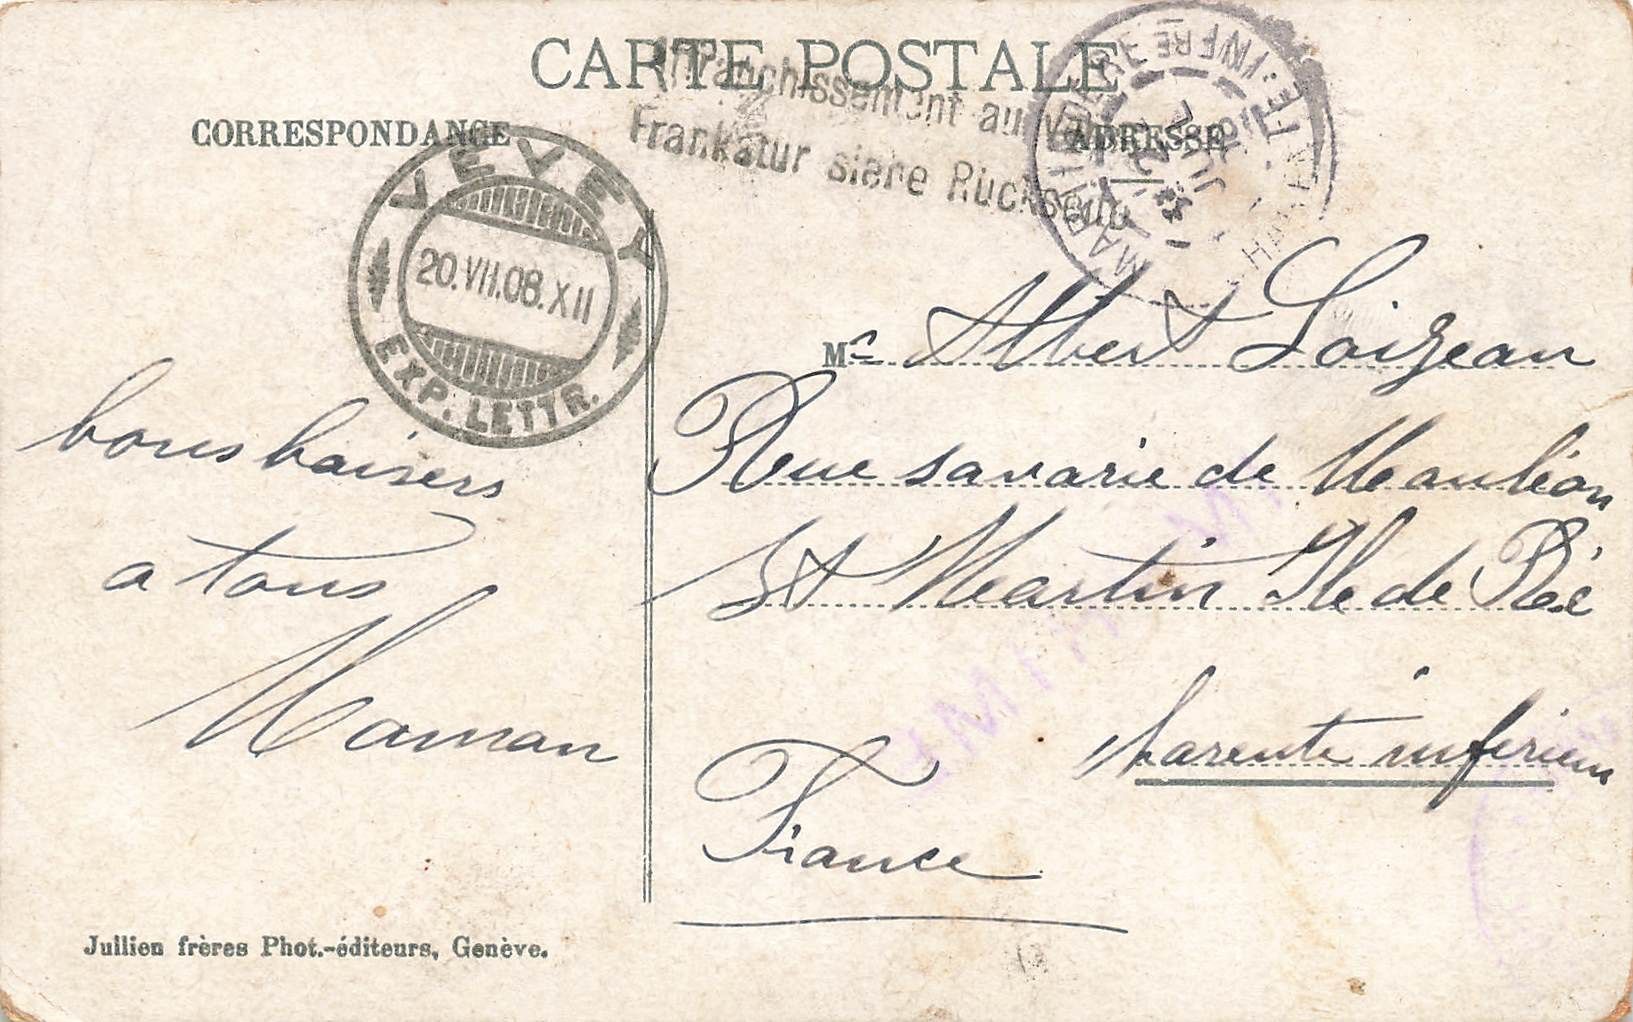 CARTE POSTALE
Affranchissement au verso
Frankatur siehe Rückseite
CORRESPONDANCE
ADRESSE
VEVEY
20.VII.08.XII
EXP. LETTR.
Mr Albert Loizeau
Rue savarie de Mauléon
St Martin Ile de Ré
charente inférieur
France
bons baisers
a tous
Maman
Jullien frères Phot.-éditeurs, Genève.